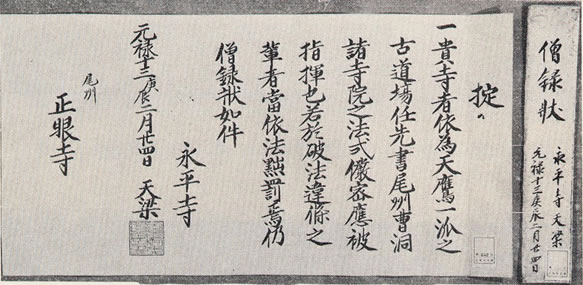 僧録状
永平寺天梁
元禄十三庚辰二月廿四日
掟
一貴寺者依為天鷹一派之
古道場任先書尾州曹洞
諸寺院之法式儼密應被
指揮也若於破法違條之
輩者當依法黜罰焉仍
僧録状如件
永平寺
元禄十三庚辰二月廿四日 天梁
尾州
正眼寺